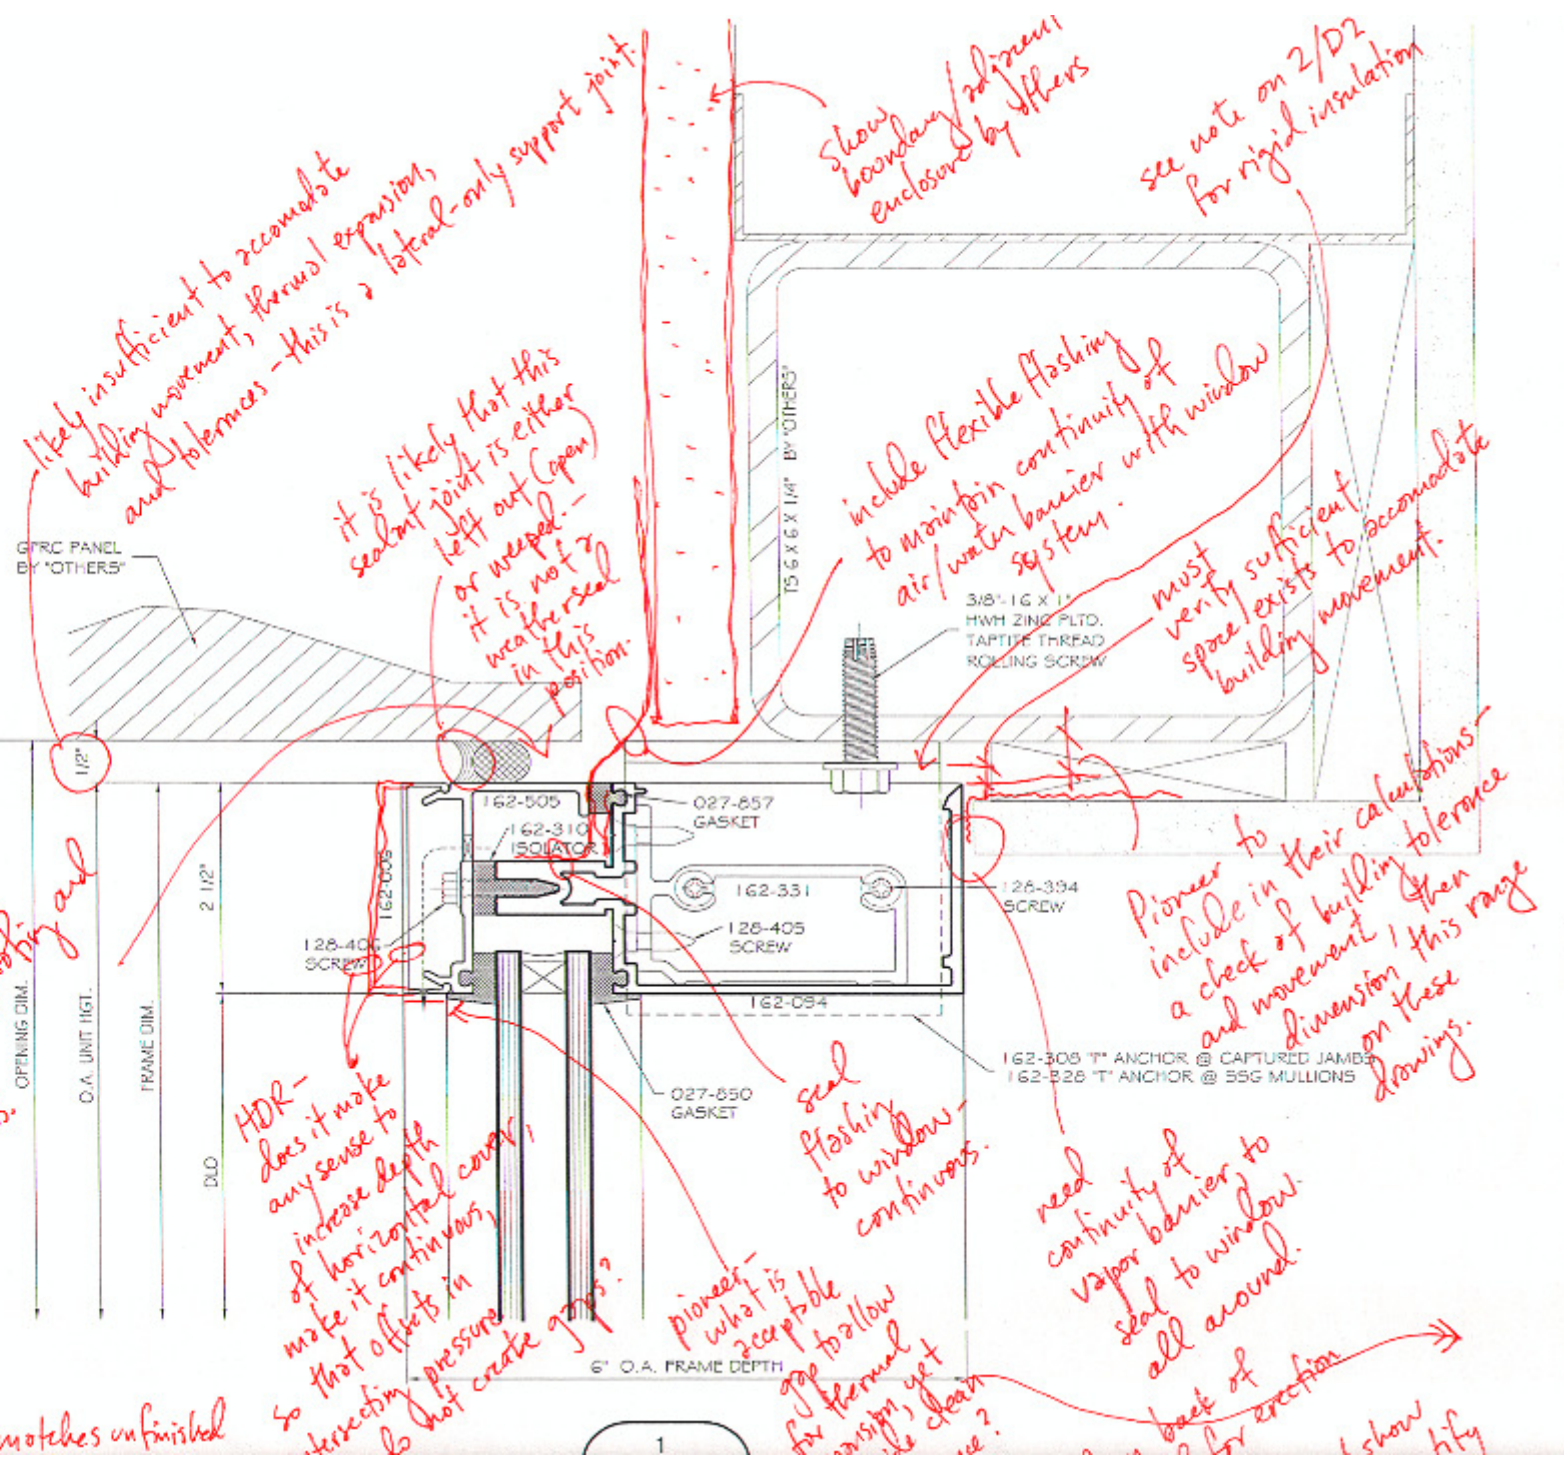 likely insufficient to accomodate
building movement, thermal expansion,
and tolerances - this is a lateral-only support joint.
show
boundary/adjacent
enclosure by others
see note on 2/D2
for rigid insulation
it is likely that this
sealant joint is either
left out (open)
or weeped. -
it is not a
weatherseal
in this
position.
include flexible flashing
to maintain continuity of
air/water barrier with window
system.
must
verify sufficient
space exists to accomodate
building movement.
GFRC PANEL
BY "OTHERS"
TS 6 X 6 X 1/4" BY "OTHERS"
3/8"-16 X 1"
HWH ZINC PLTD.
TAPTITE THREAD
ROLLING SCREW
1/2"
162-505
162-310
ISOLATOR
027-857
GASKET
162-006
2 1/2"
162-331
128-394
SCREW
128-406
SCREW
128-405
SCREW
162-094
162-308 "F" ANCHOR @ CAPTURED JAMBS
162-328 "T" ANCHOR @ SSG MULLIONS
027-850
GASKET
Pioneer to
include in their calculations -
a check of building tolerance
and movement, then
dimension this range
on these
drawings.
and
OPENING DIM.
O.A. UNIT HGT.
FRAME DIM.
DLO
HDR -
does it make
any sense to
increase depth
of horizontal cover,
make it continuous,
so that offsets in
pressure
not create gaps?
seal
flashing
to window -
continuous.
need
continuity of
vapor barrier to
seal to window.
all around.
pioneer -
what is
acceptable
gap to allow
for thermal
yet
clean
6" O.A. FRAME DEPTH
matches unfinished
1
back of
for erection
show